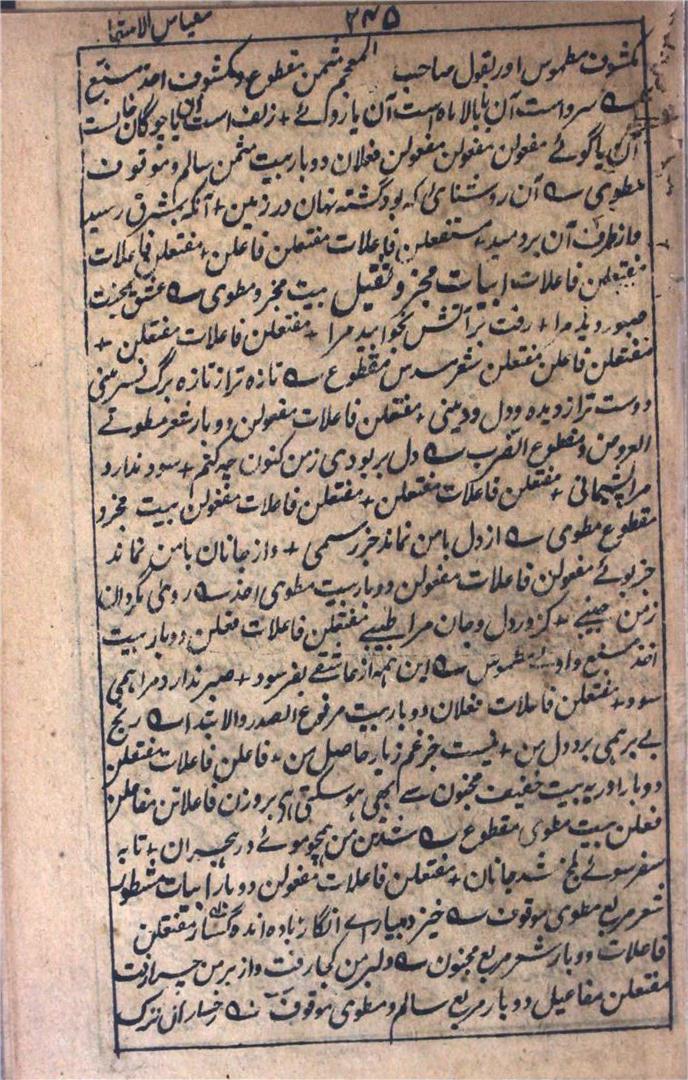 ۲۴۵ مقیاس الاشعا
مکشوف مطموس اور بقول صاحب المعجم مثمن مقطوع و مکشوف احذ مسبغ
سرو است آن یا بالا ماه است آن یا روئے + زلف است آن یا چوگان خال است
آن یا گوئے مفعولن مفعولن مفعولن فعلان دوبار بیت مثمن سالم و موقوف
مطوی آن روشنائی که بود گشته نهان در زمین + آنکه بمشرق رسید
و از طرف آن بردمید + مستفعلن فاعلات مفتعلن فاعلن + مفتعلن فاعلات
مفتعلن فاعلات ابیات مجزو ثقیل بیت مجزو مطوی عشق
صبور دیده را + رفت بر آتش بخوابید مرا + مفتعلن فاعلات مفتعلن +
مفتعلن فاعلن مفتعلن شعر مسدس مقطوع تازه تر از تازه برگ نسرینی
دوست تر از دیده و دل و دینی + مفتعلن فاعلات مفعولن دوبار شعر مطوئے
العروض و مقطوع الضرب دل بربودی ز من کنون چه کنم + سود ندارد
مرا پشیمانی + مفتعلن فاعلات مفتعلن + مفتعلن فاعلات مفعولن بیت مجزو
مقطوع مطوی از دل با من نماند جز رسمی + و از جانان با من نماند
جز بوئے مفعولن فاعلات مفعولن دوبار بیت مطوی احذ روی مگردان
ز من حبیبے + کز درد دل و جان مرا طبیبے مفتعلن فاعلات فعلن دوبار بیت
احذ مسبغ و اولے مطموس این همه از عاشقے بفرسود + صبر ندارد مرا همی
سود + مفتعلن فاعلات فعلان دوبار بیت مرفوع الصدر والابتدا رنج
بے بر همی برد دل من + نیست جز غم ز یار حاصل من + فاعلن فاعلات مفتعلن
دوبار اور یه بیت خفیف مخبون سے بھی ہو سکتی ہی بر وزن فاعلاتن مفاعلن
فعلن بیت مطوی مقطوع شد تن من همچو موئے در هجران + تا به
سفر سوئے بلخ شد جانان + مفتعلن فاعلات مفعولن دوبار ابیات مشطور
شعر مربع مطوی موقوف خیز و بیار اے نگار باده انده گسار مفتعلن
فاعلات دوبار شعر مربع مخبون دلبر من کجا رفت و از بر من چرا رفت
مفتعلن مفاعیل دوبار مربع سالم و مطوی موقوف رخسار آن ترک